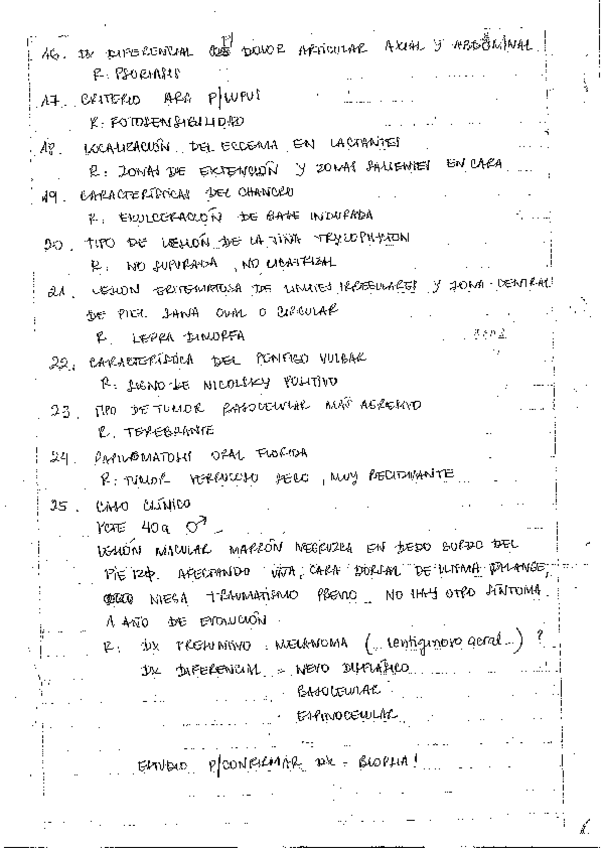 16. DX DIFERENCIAL P/ DOLOR ARTICULAR AXIAL Y ABDOMINAL
R: PSORIASIS
17. CRITERIO ARA P/LUPUS
R: FOTOSENSIBILIDAD
18. LOCALIZACIÓN DEL ECCEMA EN LACTANTES
R: ZONAS DE EXTENCIÓN Y ZONAS SALIENTES EN CARA
19. CARACTERÍSTICAS DEL CHANCRO
R. EXULCERACIÓN DE BASE INDURADA
20. TIPO DE LESIÓN DE LA TIÑA TRYCOPHYTON
R. NO SUPURADA, NO CICATRIZAL
21. LESION ERITEMATOSA DE LIMITES IRREGULARES Y ZONA CENTRAL
DE PIEL SANA OVAL O CIRCULAR
R. LEPRA DIMORFA
22. CARACTERÍSTICA DEL PENFIGO VULGAR
R: SIGNO DE NICOLSKY POSITIVO
23. TIPO DE TUMOR BASOCELULAR MÁS AGRESIVO
R. TEREBRANTE
24. PAPILOMATOSIS ORAL FLORIDA
R: TUMOR VERRUCOSO SECO, MUY RECIDIVANTE
25. CASO CLÍNICO
PCTE 40a ♂
LESIÓN MACULAR MARRÓN NEGRUZCA EN DEDO GORDO DEL
PIE IZQ. AFECTANDO UÑA, CARA DORSAL DE ULTIMA FALANGE,
NIEGA TRAUMATISMO PREVIO NO HAY OTRO SÍNTOMA
1 AÑO DE EVOLUCIÓN
R: DX PRESUNTIVO: MELANOMA (... lentiginoso acral...) ?
DX DIFERENCIAL - NEVO DISPLÁSICO
BASOCELULAR
ESPINOCELULAR
ESTUDIO P/CONFIRMAR DX - BIOPSIA!